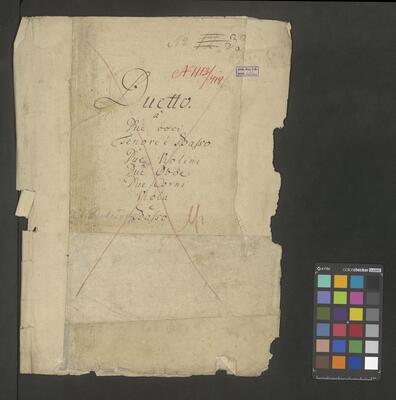 No
A 1113/
419
Duetto.
a
Due voci
Tenore è Basso.
Due Violini
Due Oboe
Due Corni
Viola
Basso
colorchecker CLASSIC